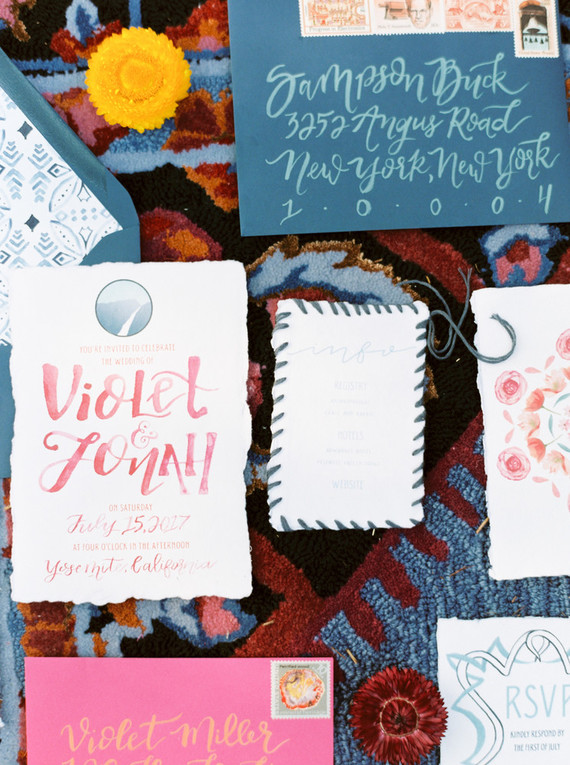 Sampson Buck
3252 Angus Road
New York, New York
1 · 0 · 0 · 0 · 4
YOU'RE INVITED TO CELEBRATE
THE WEDDING OF
Violet
&
Jonah
ON SATURDAY
July 15, 2017
AT FOUR O'CLOCK IN THE AFTERNOON
Yosemite, California
info
REGISTRY
HOTELS
WEBSITE
Violet Miller
RSVP
KINDLY RESPOND BY
THE FIRST OF JULY